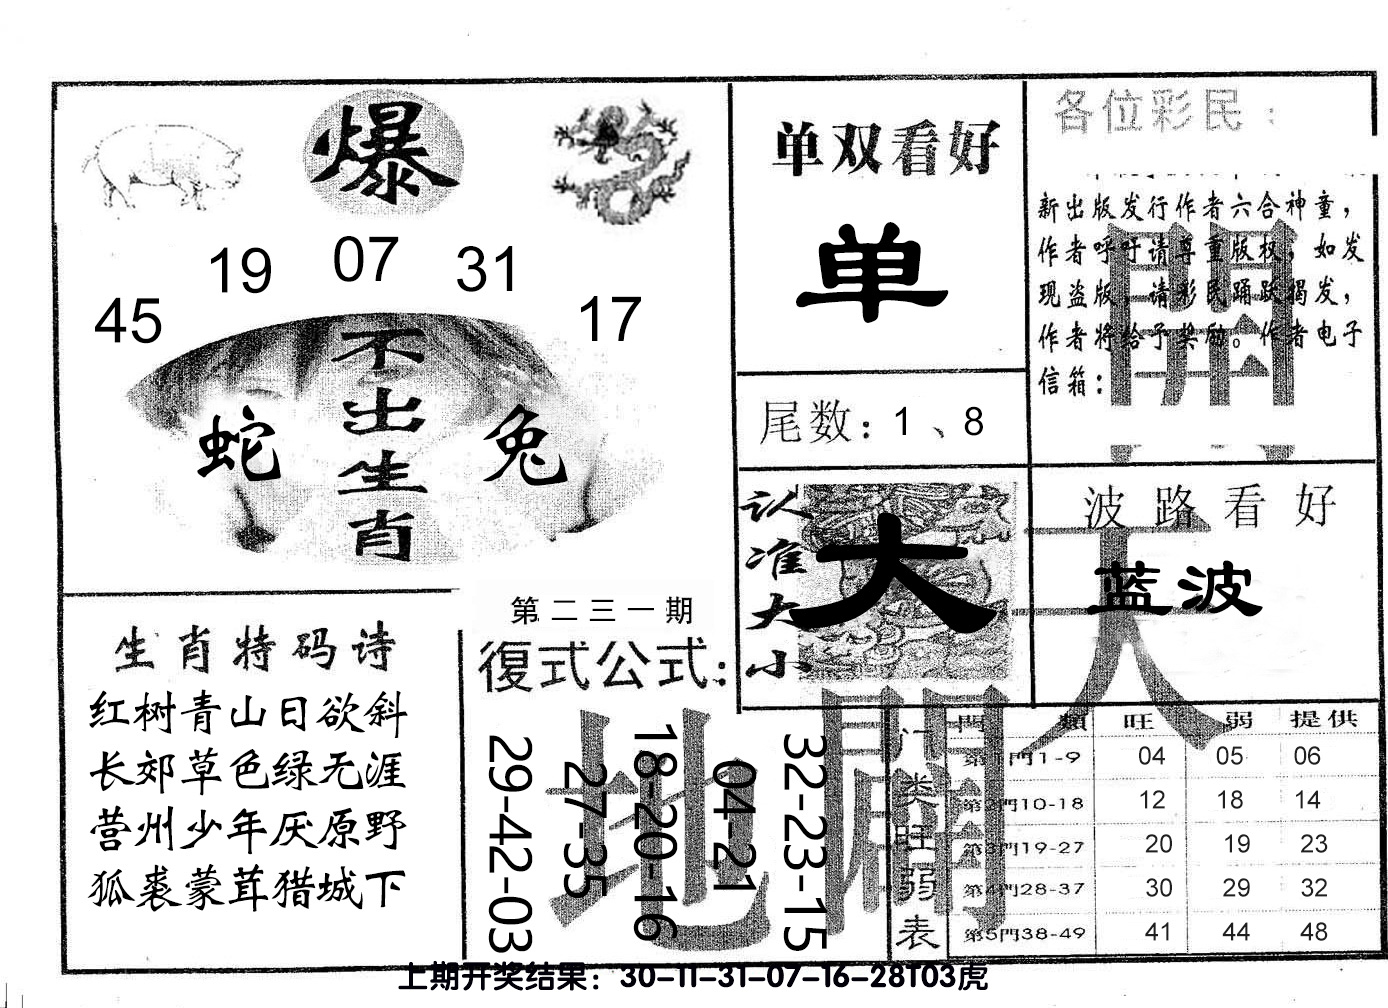 爆
45
19
07
31
17
不出生肖
蛇
兔
单双看好
单
尾数：1、8
各位彩民：
新出版发行作者六合神童，
作者呼吁请尊重版权，如发
现盗版，请彩民踊跃揭发，
作者将给予奖励。作者电子
信箱：
認准大小
大
波路看好
蓝波
天
開
地
闢
生肖特码诗
红树青山日欲斜
长郊草色绿无涯
营州少年厌原野
狐裘蒙茸猎城下
第二三一期
復式公式：
29-42-03
27-35
18-20-16
04-21
32-23-15
门类旺弱表
門 類 旺 弱 提供
第1門1-9 04 05 06
第2門10-18 12 18 14
第3門19-27 20 19 23
第4門28-37 30 29 32
第5門38-49 41 44 48
上期开奖结果：30-11-31-07-16-28T03虎